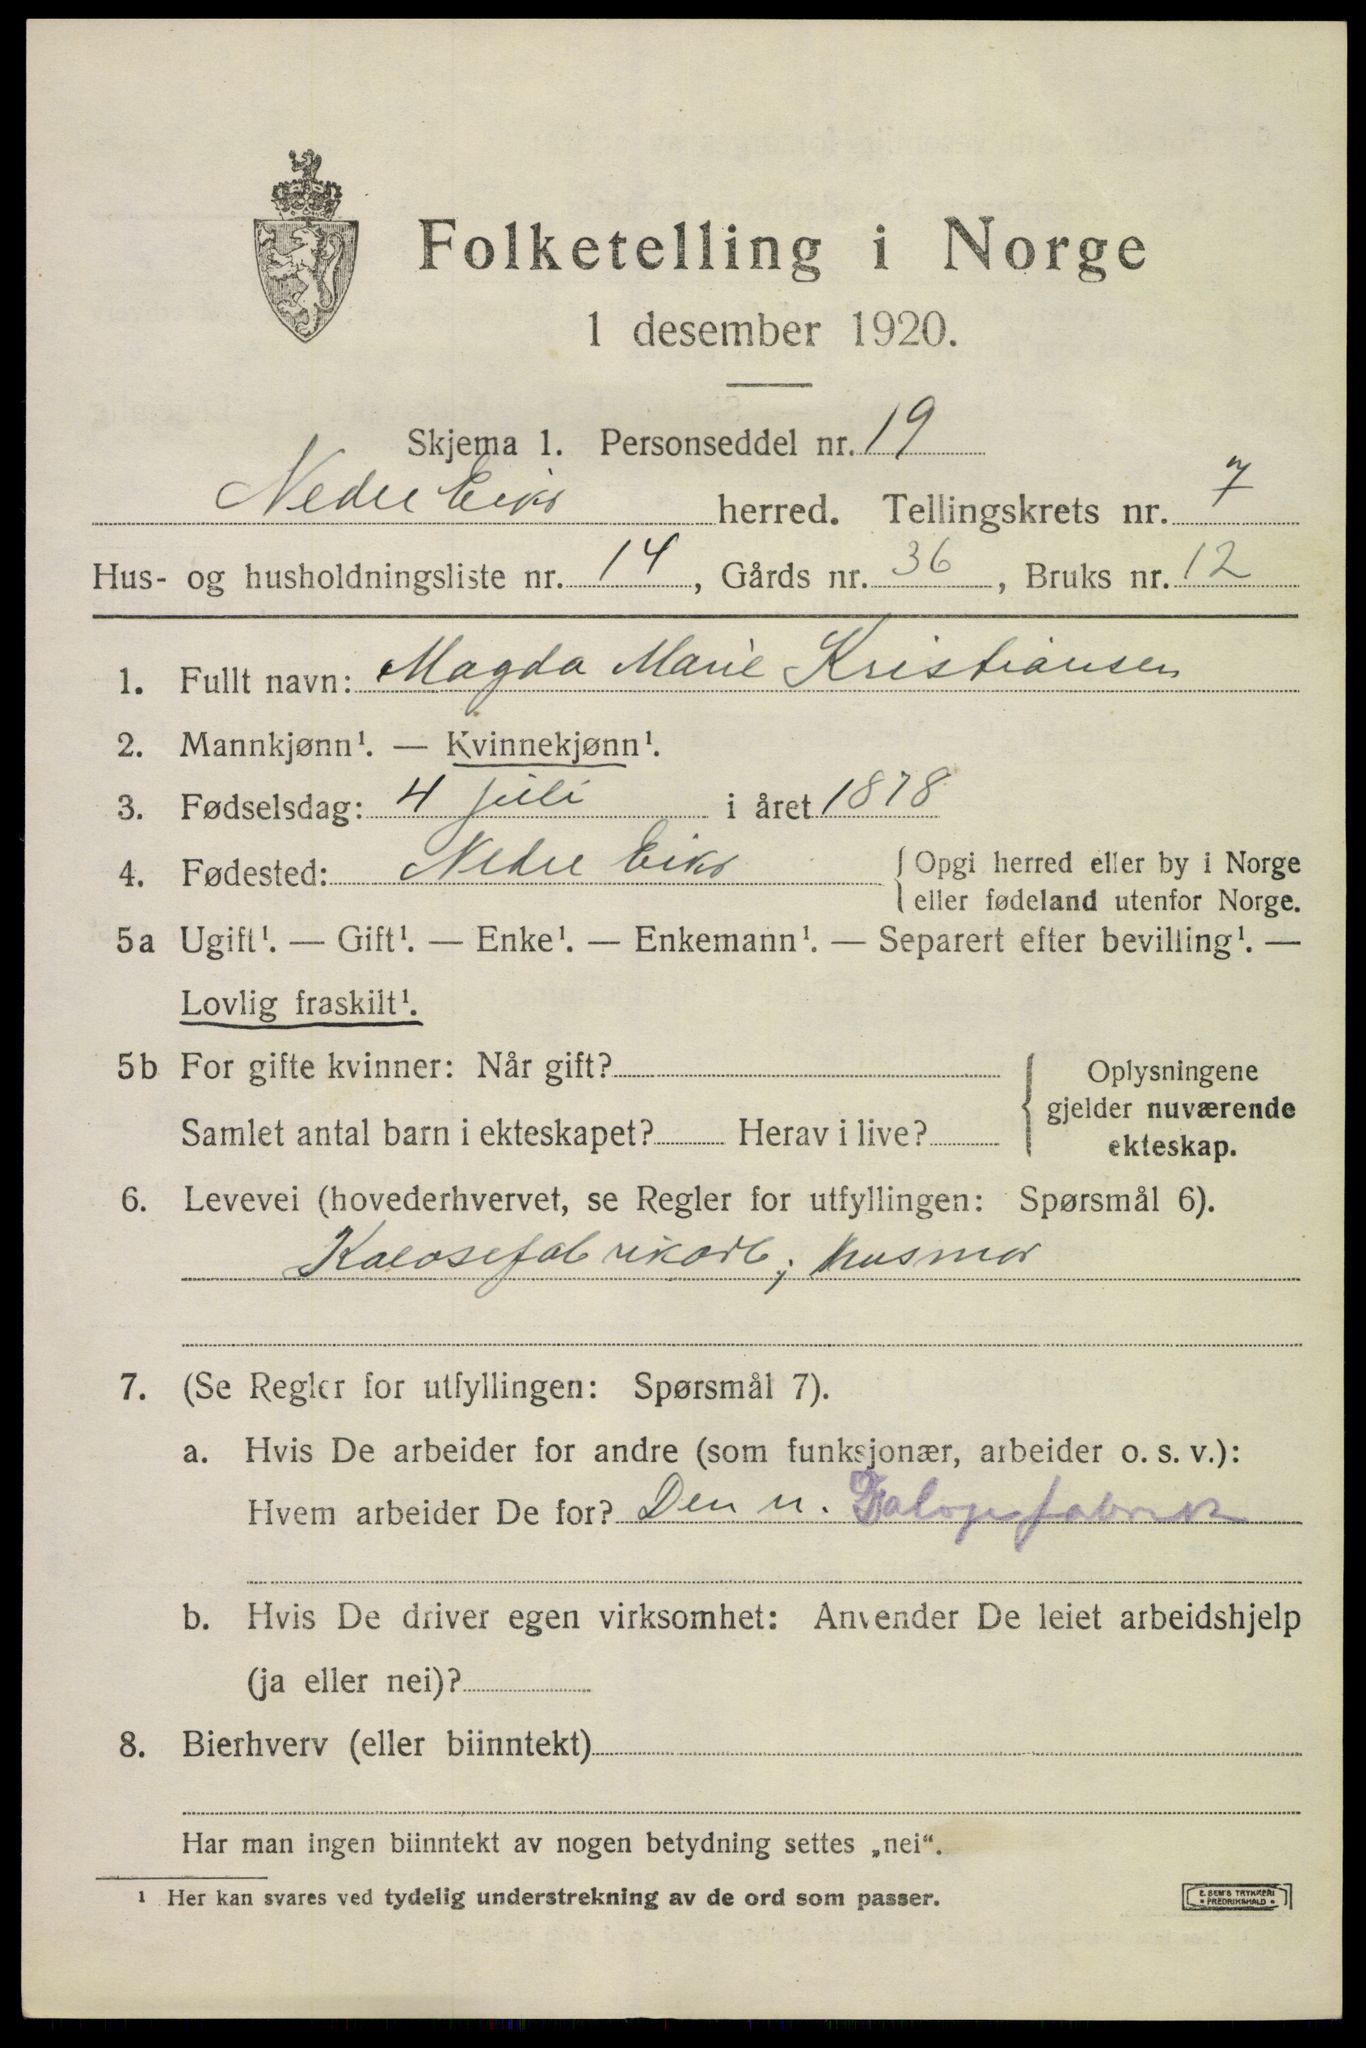 Folketelling i Norge
1 desember 1920.
Skjema 1. Personseddel nr. 19
Nedre Eiker herred. Tellingskrets nr. 7
Hus- og husholdningsliste nr. 14, Gårds nr. 36, Bruks nr. 12
1. Fullt navn: Magda Marie Kristiansen
2. Mannkjønn¹. — Kvinnekjønn¹.
3. Fødselsdag: 4 juli i året 1878
4. Fødested: Nedre Eiker { Opgi herred eller by i Norge
eller fødeland utenfor Norge.
5a Ugift¹. — Gift¹. — Enke¹. — Enkemann¹. — Separert efter bevilling¹. —
Lovlig fraskilt¹.
5b For gifte kvinner: Når gift?
Samlet antal barn i ekteskapet? Herav i live?
{ Oplysningene
gjelder nuværende
ekteskap.
6. Levevei (hovederhvervet, se Regler for utfyllingen: Spørsmål 6).
Kalosefabrikarb; husmor
7. (Se Regler for utfyllingen: Spørsmål 7).
a. Hvis De arbeider for andre (som funksjonær, arbeider o. s. v.):
Hvem arbeider De for? Den n. Galogefabrik
b. Hvis De driver egen virksomhet: Anvender De leiet arbeidshjelp
(ja eller nei)?
8. Bierhverv (eller biinntekt)
Har man ingen biinntekt av nogen betydning settes „nei“.
¹ Her kan svares ved tydelig understrekning av de ord som passer.
E. SEM'S TRYKKERI
• FREDRIKSHALD •